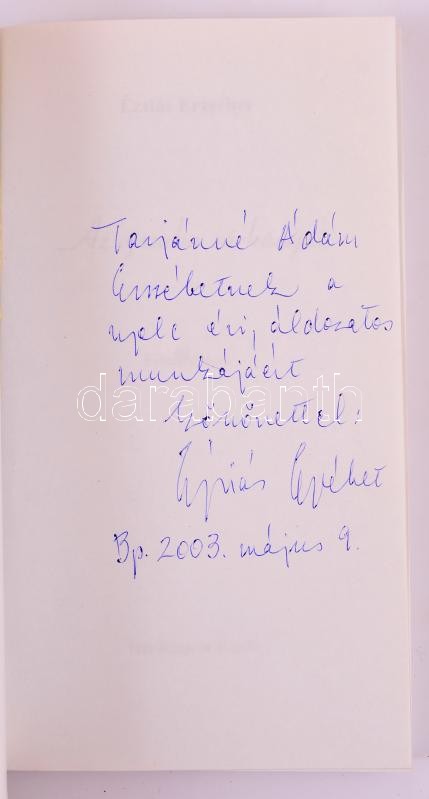 Tarjánné Ádám
Erzsébetnek a
nyolc évi, áldozatos
munkájáért
köszönettel:
Erzsébet
Bp. 2003. május 9.
darabanth